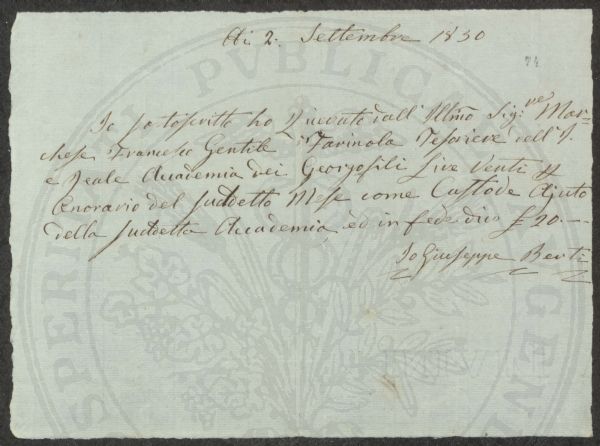 Ai 2. Settembre 1830
74
Io sottoscritto ho ricevuto dall' Illmo Sig:re Mar=
chese Francesco Gentile Farinola Tesoriere dell' I.
e Reale Accademia dei Georgofili Lire Venti p
Onorario del suddetto Mese come Custode Ajuto
della suddetta Accademia, ed in fede dico £ 20.—
Io Giuseppe Berti
PUBLICA
PROSPERITATIS